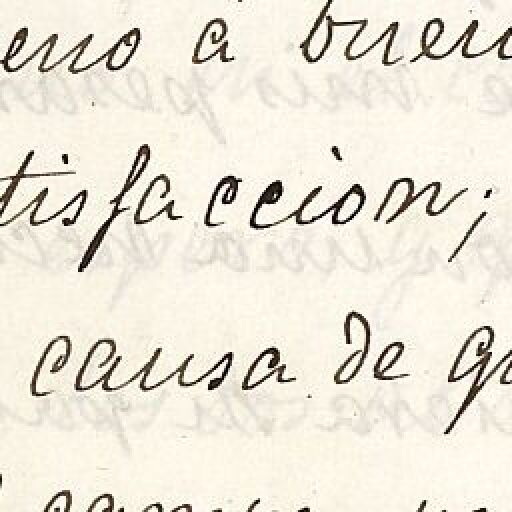 eno á buen
tisfaccion;
causa de qu